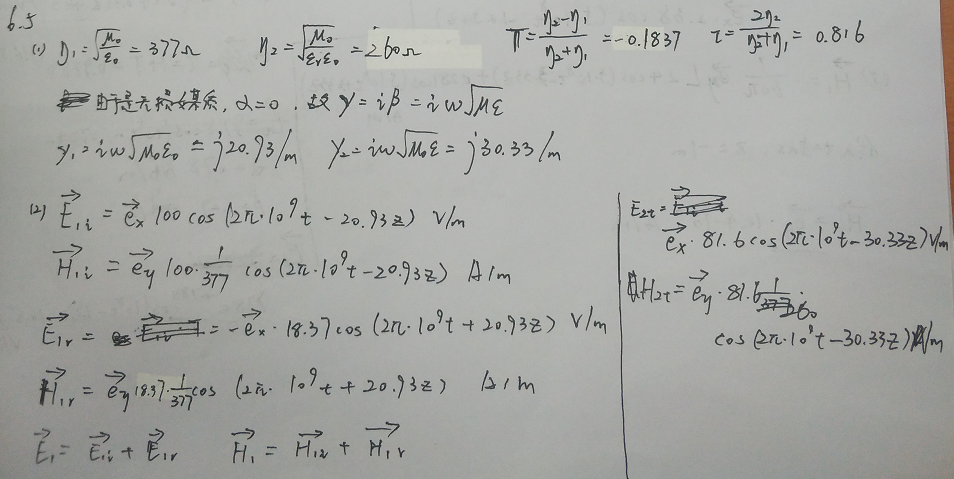 6.5
(1) η₁ = √(μ₀/ε₀) = 377Ω η₂ = √(μ₀/(εᵣε₀)) = 260Ω Γ = (η₂-η₁)/(η₂+η₁) = -0.1837 τ = 2η₂/(η₂+η₁) = 0.816
由于是无损媒系, α=0, 故 γ = iβ = iω√(με)
γ₁ = iω√(μ₀ε₀) = j20.93/m γ₂ = iω√(μ₀ε) = j30.33/m
(2) E⃗₁ᵢ = e⃗ₓ 100 cos (2π·10⁹t - 20.93z) V/m
H⃗₁ᵢ = e⃗ᵧ 100·1/377 cos (2π·10⁹t - 20.93z) A/m
E⃗₁ᵣ = = -e⃗ₓ · 18.37 cos (2π·10⁹t + 20.93z) V/m
H⃗₁ᵣ = e⃗ᵧ 18.37·1/377 cos (2π·10⁹t + 20.93z) A/m
E⃗₁ = E⃗₁ᵢ + E⃗₁ᵣ H⃗₁ = H⃗₁ᵢ + H⃗₁ᵣ
E₂ₜ =
e⃗ₓ · 81.6 cos (2π·10⁹t - 30.33z) V/m
H₂ₜ = e⃗ᵧ · 81.6 1/260 ·
cos (2π·10⁹t - 30.33z) A/m